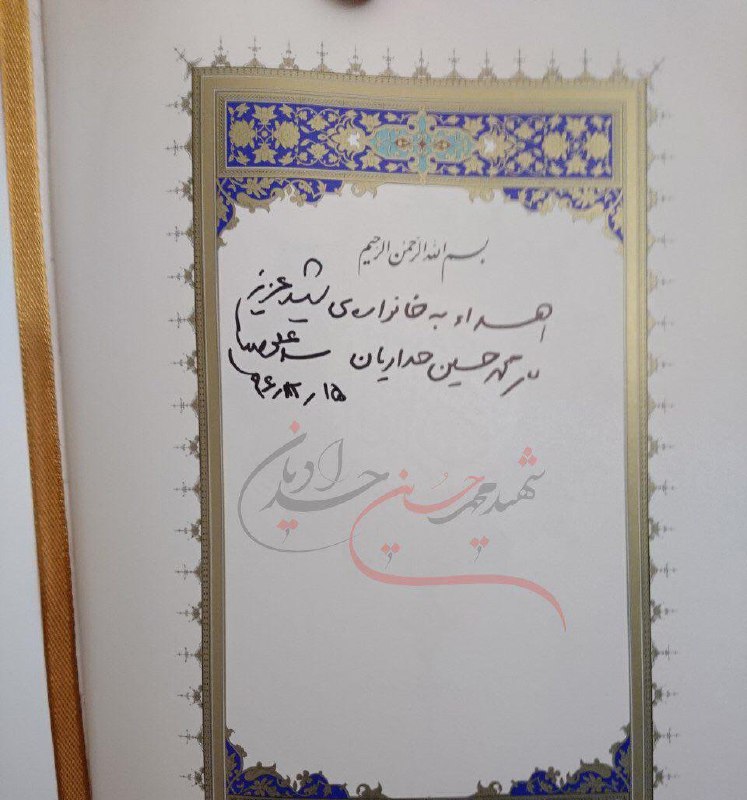 بسم الله الرحمن الرحیم
اهداء به خانواده‌ی شهید عزیز
محمد حسین حدادیان سید علی
۹۶/۱۲/۱۵
شهید محمد حسین حدادیان